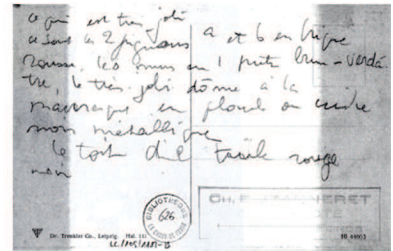 ce qui est très joli
ce sont les 2 pignons a et b en brique
rousse, les murs en 1 jaune brun-verdâ
tre, le très joli dôme à la
mauresque en plomb ou cuivre
non métallique
le toit d'1 tuile rouge
noir
BIBLIOTHÈQUE
626
LA CHAUX-DE-FONDS
CH. E. JEANNERET
Dr. Trenkler Co., Leipzig.